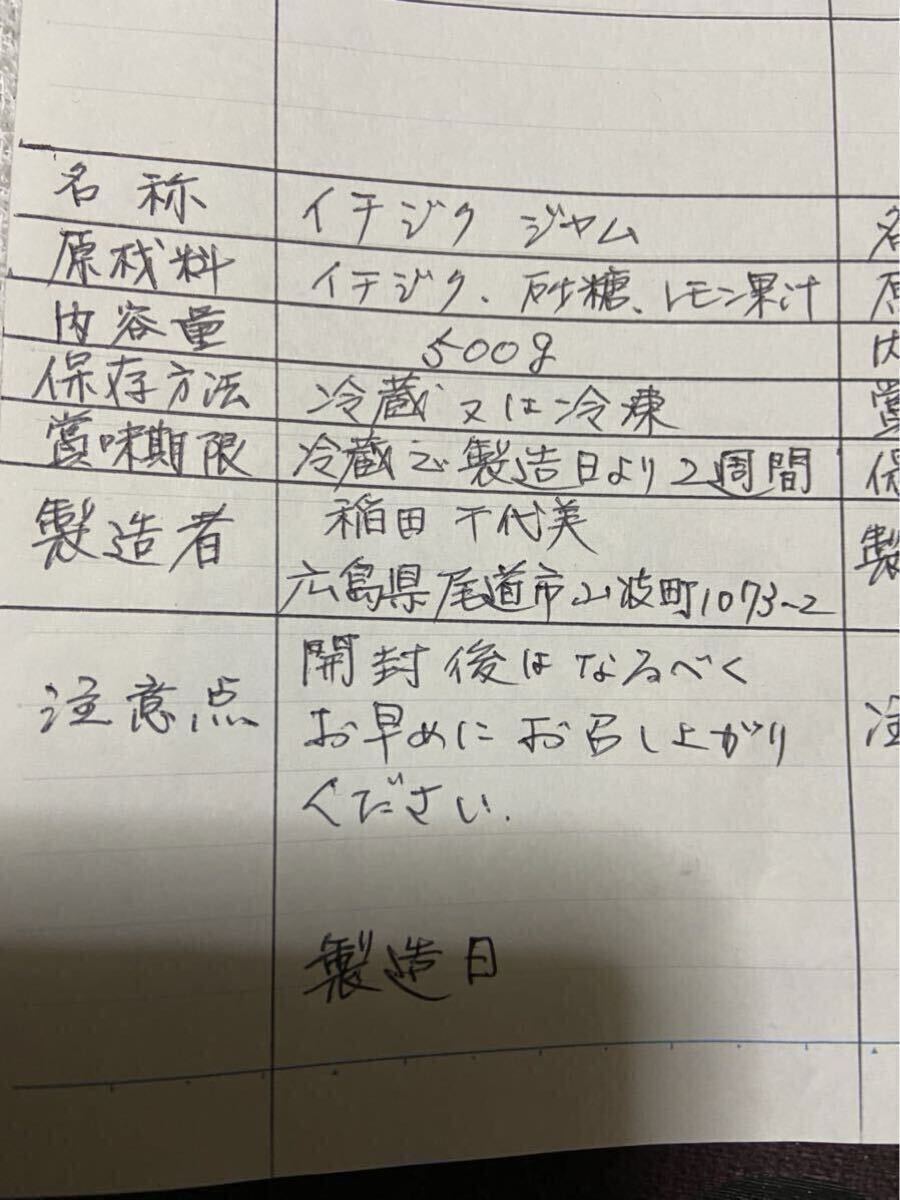 名称 イチジク ジャム
原材料 イチジク、砂糖、レモン果汁
内容量 500g
保存方法 冷蔵又は冷凍
賞味期限 冷蔵で製造日より2週間
製造者 稲田 千代美
広島県尾道市山波町1073-2
注意点 開封後はなるべく
お早めにお召し上がり
ください.
製造日
名
原
内
賞
保
製
注